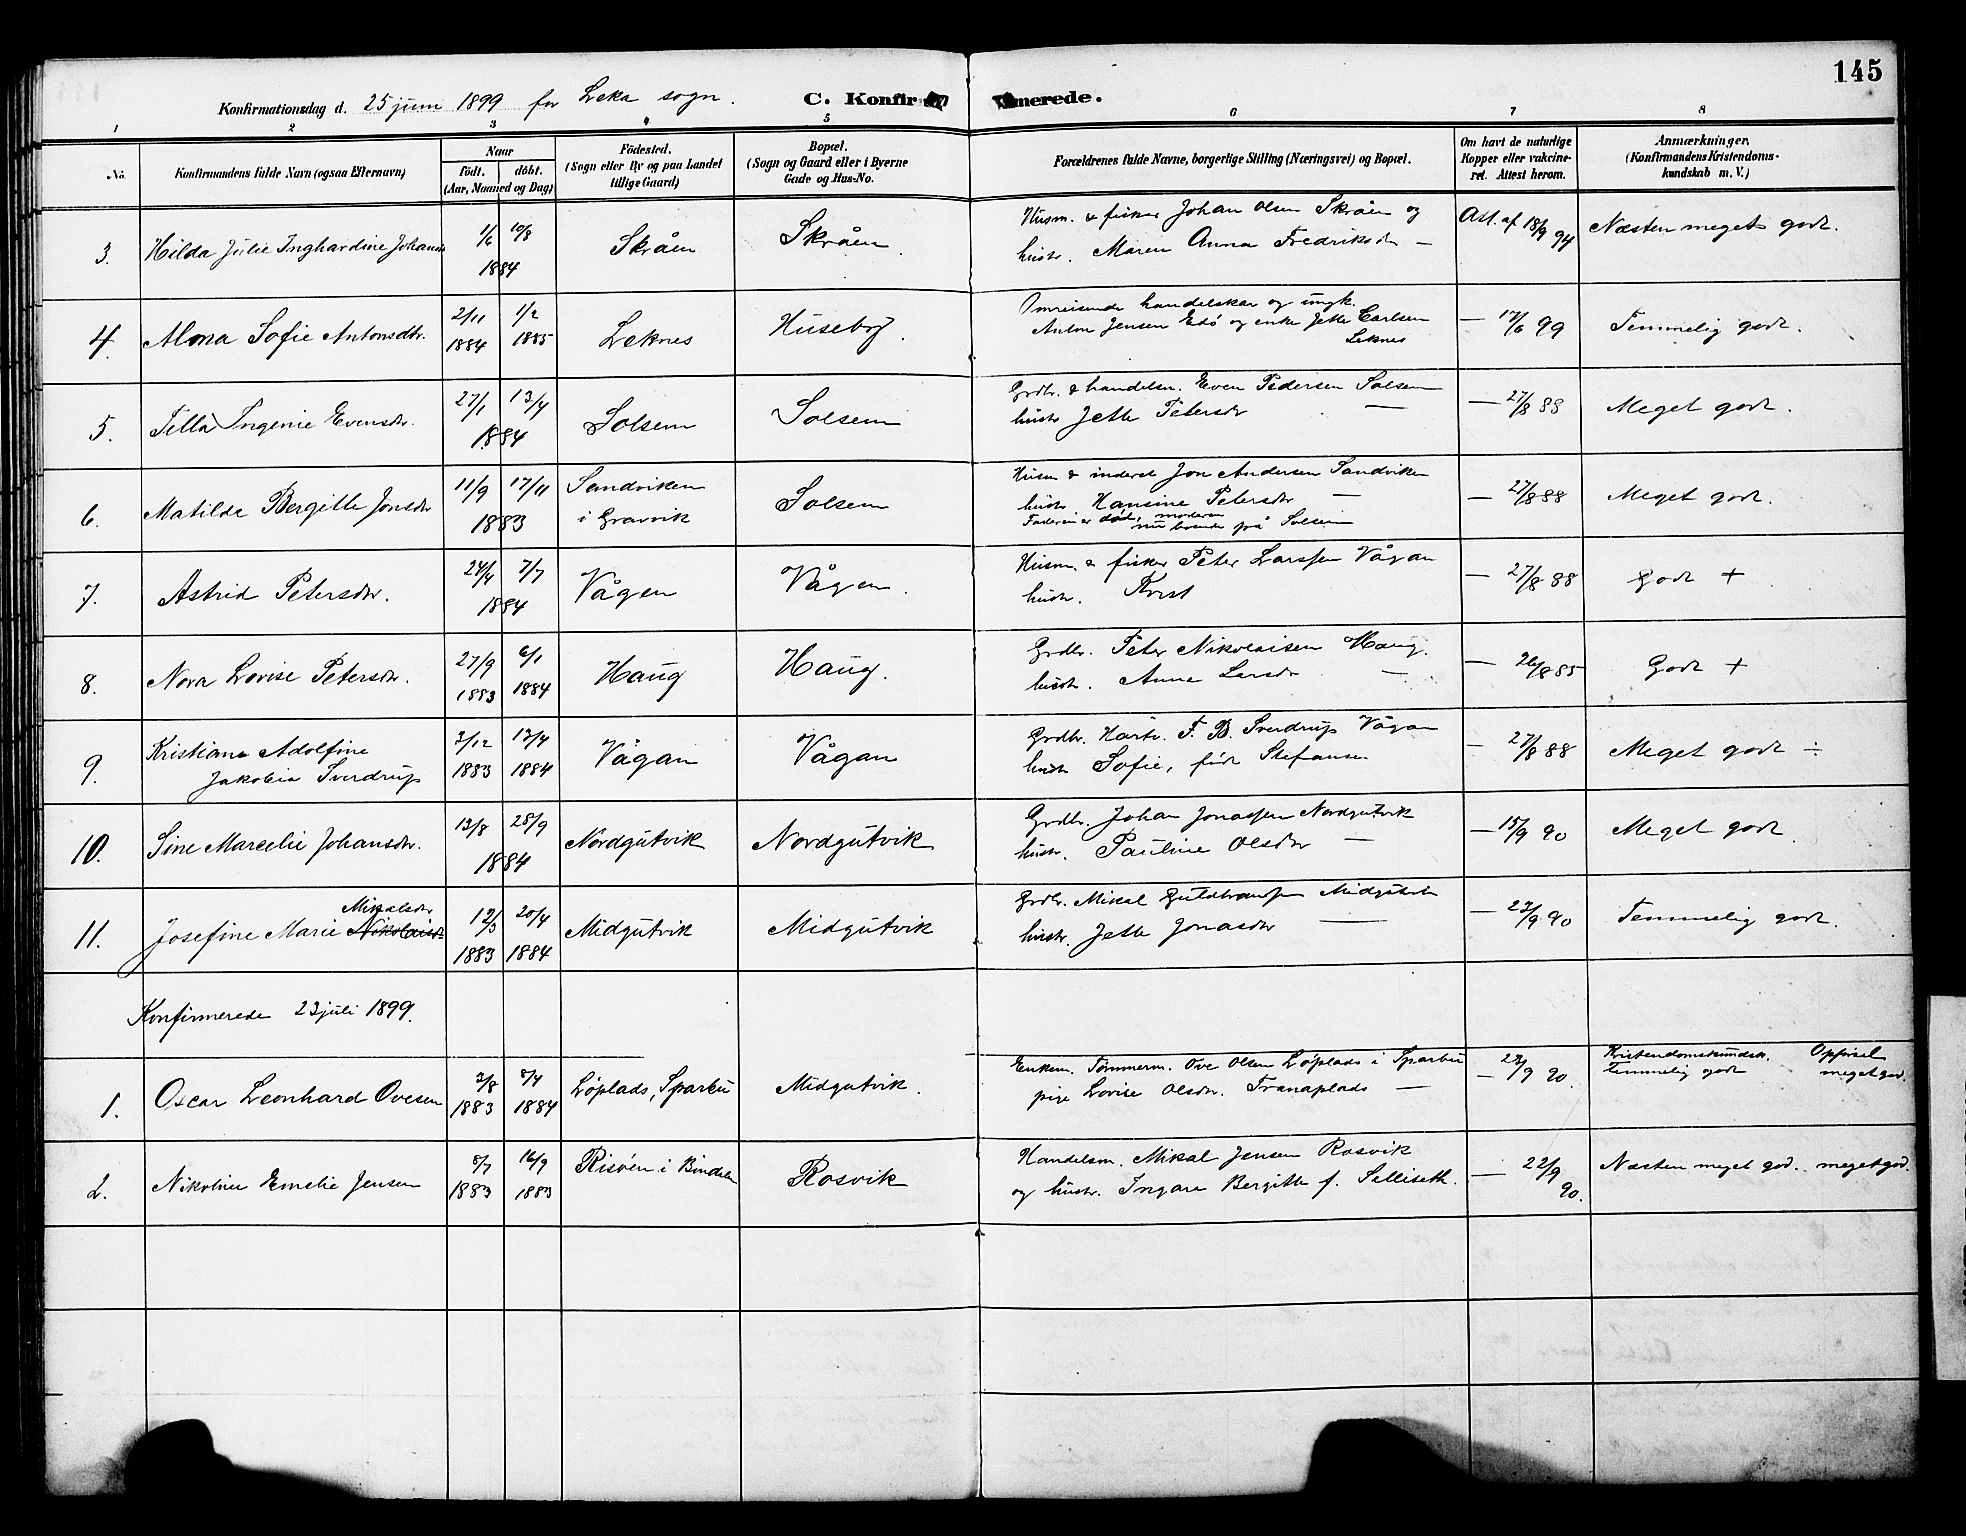 145
Konfirmationsdag d. 25 juni 1899 for Leka sogn. C. Konfirmerede.
1 2 3 4 5 6 7 8
No. Konfirmandens fulde Navn (ogsaa Efternavn) Naar født. døbt. (Aar, Maaned og Dag) Fødested. (Sogn eller By og paa Landet tillige Gaard) Bopæl. (Sogn og Gaard eller i Byerne Gade og Hus-No. Forældrenes fulde Navne, borgerlige Stilling (Næringsvei) og Bopæl. Om havt de naturlige Kopper eller vakcineret. Attest herom. Anmærkninger. (Konfirmandens Kristendomskundskab m. V.)
3. Hilda Julie Inghardine Johans 1/6 10/8 1884 Skråen Skråen Husm. & fisker Johan Olsen Skråen og
hustr. Maren Anna Fredriksdr — Att. af 18/9 94 Næsten meget godt.
4. Alma Sofie Antonsdtr. 2/11 1884 1/2 1885 Leknes Huseby Omreisende handelskar og ungk.
Anton Jensen Edø og enke Jette Carlsen
Leknes — 17/6 99 Temmelig godt.
5. Tella Ingenie Evensdr. 27/1 13/4 1884 Solsem Solsem Grdbr. & handelsm. Even Pedersen Solsem
hustr Jette Petersdr — — 27/8 88 Meget godt.
6. Matilde Bergitte Jonsdr 11/9 17/11 1883 Sandviken i Gravvik Solsem Husm & inderst Jon Andersen Sandviken
hustr. Hansine Petersdr —
Faderen er død, moderen nu boende på Solsem — 27/8 88 Meget godt.
7. Astrid Petersdr. 24/4 7/7 1884 Vågen Vågen. Husm. & fisker Peter Larssen Vågan
hustr. Krist — 27/8 88 Godt +
8. Nora Lovise Petersdr. 27/9 1883 6/1 1884 Haug Haug. Grdbr. Peter Nikolaisen Haug.
hustr. Anna Larsdr — — 26/8 85 Godt +
9. Kristiane Adolfine
Jakobia Sverdrup 3/12 1883 13/4 1884 Vågan Vågan Grdbr. Hartv. F. B. Sverdrup Vågan
hustr Sofie, født Stefansen — 27/8 88 Meget godt ÷
10. Sine Marcelie Johansdr. 13/8 28/9 1884 Nordgutvik Nordgutvik Grdbr. Johan Jonassen Nordgutvik
hustr. Pauline Olsdr — — 15/9 90 Meget godt.
11. Josefine Marie Nikolaisdr Mikalsdr 12/3 1883 20/4 1884 Midgutvik Midgutvik Grdbr. Mikal Guldbransen Midgutvik
hustr. Jette Jonasdr — — 23/9 90 Temmelig godt.
Konfirmerede 23 juli 1899.
1. Oscar Leonhard Ovesen 3/8 1883 8/4 1884 Løplads, Sparbu Midgutvik. Enkem. Tømmerm. Ove Olsen Løplads i Sparbu
pige Lovise Olsdr. Tranaplads — — 29/9 90. Kristendomskundsk. Temmelig godt Opførsel meget god.
2. Nikoline Emelie Jensen 8/7 1883 16/9 1883 Risøen i Bindalen Rosvik Handelsm. Mikal Jensen Rosvik
og hustr. Ingare Bergitte f. Selliseth. — 22/9 90. Næsten meget god. meget god.